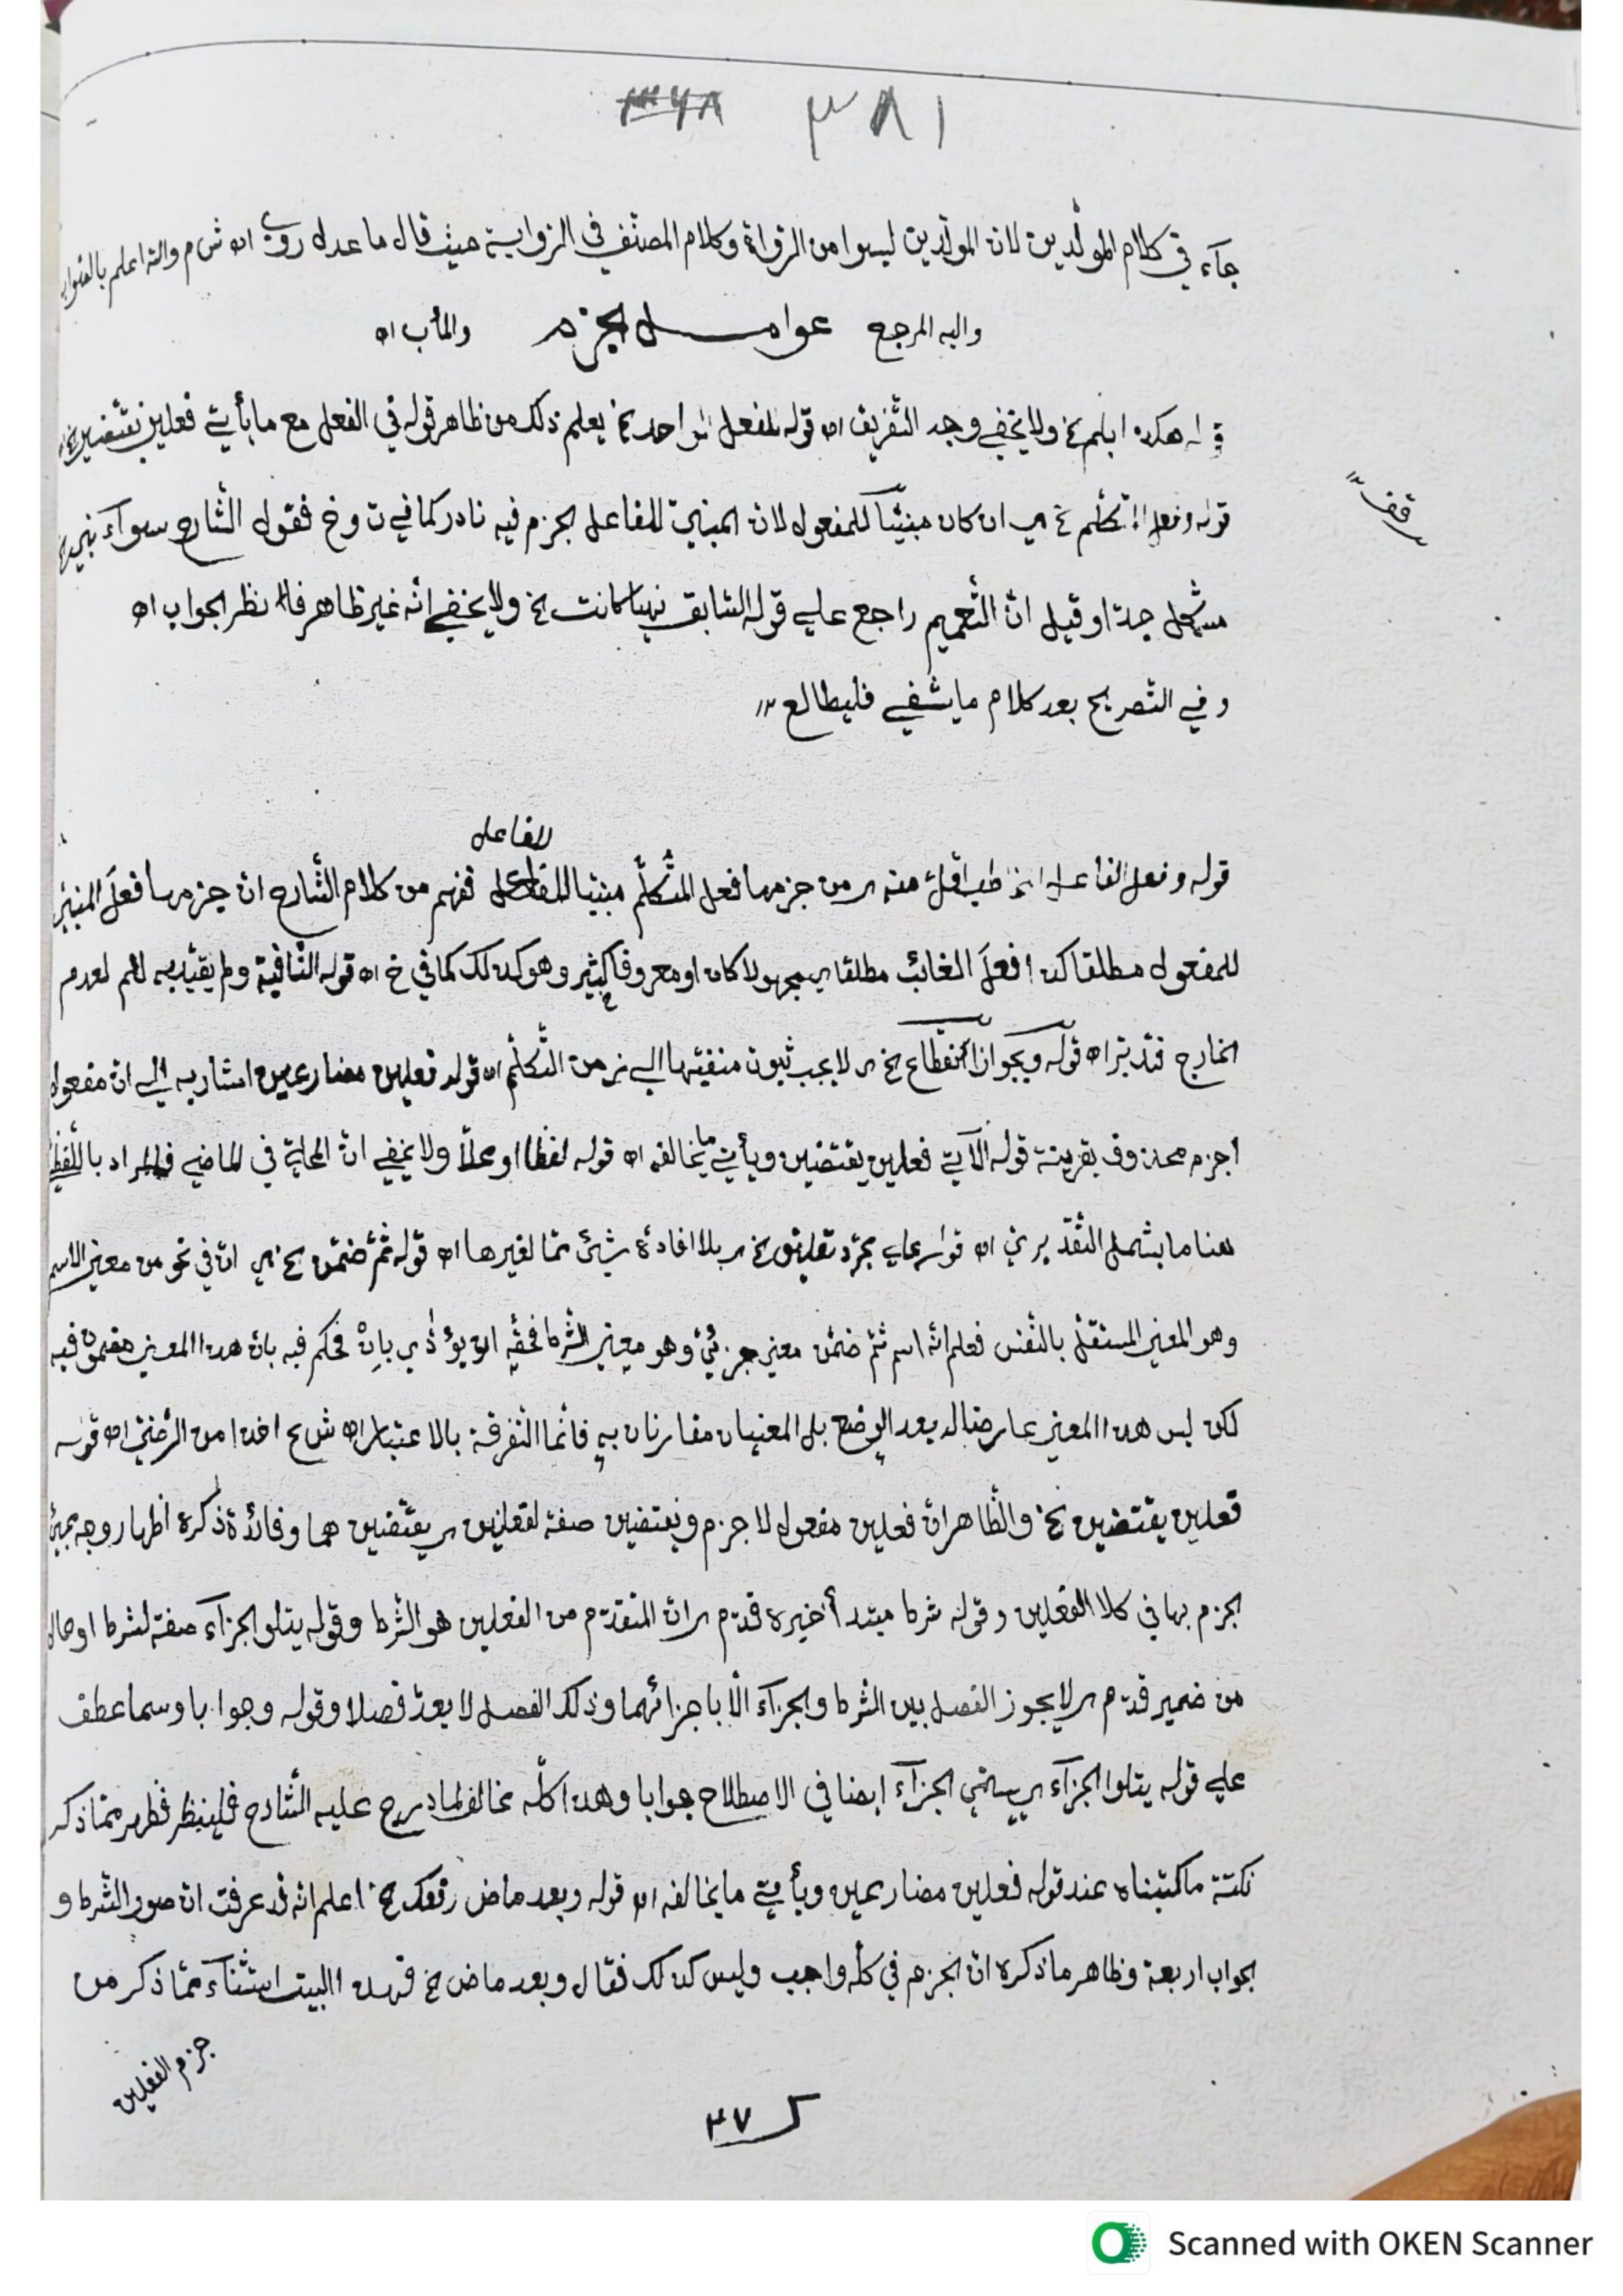 ٣٦٨ ٣٨١
جآء في كلام المولّدين لان المولّدين ليسوا من الرّواة وكلام المصنّف في الرّواية حيث قال ما عدل روي اه ش م والله اعلم بالصّواب
واليه المرجع عوامل الجزم والمأب اه
هكذا بلم خ ولا يخفي وجه التّفريق اه قوله لفعل واحد خ يعلم ذلك من ظاهر قوله في الفعل مع ما يأتي فعلين يقتضين خ
قوله وفعل المتكلّم خ اي ان كان مبنيّا للمفعول لان المبنيّ للفاعل الجزم فيه نادر كما في ت وخ فقول الشّارح سوآء
قف
مشكل جدّا وقيل انّ التّعميم راجع علي قوله السّابق نهيا كانت خ ولا يخفي انّه غير ظاهر فالنظر الجواب اه
وفي التّصريح بعد كلام ما يشفي فليطالع
للفاعل
قوله وفعل الفاعل المخاطب اقلّ منه اي من جزمها فعل المتكلّم مبنيا ففهم من كلام الشّارح انّ جزمها فعلَ المبنيّ
للمفعول مطلقا كذا فعلَ الغائب مطلقا اي مجهولا كان او معروفا كثير وهو كذلك كما في خ اه قوله النّافية ولم يقيّد به لم لعدم
الخارج فتدبّر اه قوله وبجواز انقطاع خ اي لا يجب ثبوت منفيّها الي زمن التّكلّم اه قوله فعلين مضارعين اشار به الي ان مفعول
اجزم محذوف بقرينة قوله الآتي فعلين يقتضين ويأتي ما يخالفه اه قوله لفظا او محلّا ولا يخفي انّ المحليّة في الماضي فالمراد باللّفظيّ
هنا ما يشمل التّقديريّ اه قوله علي مجرّد تعليق خ اي بلا افادة شيئ ممّا لغيرها اه قوله ثمّ ضمّن خ اي انّ في نحو من معني الاسم
وهو المعني المستقلّ بالنّفس فعلم انّه اسم ثمّ ضمّن معني جزئيّ وهو معني الشّرط فحقّه ان يؤدّي بانْ فحكم فيه بان هذا المعني مضمّن فيه
لكن ليس هذا المعني عارضا له بعد الوضع بل المعنيان مقارنان به فانّما التّفرقة بالاعتبار اه ش ح اخذا من الرّضيّ اه قوله
فعلين يقتضين خ والظّاهر انّ فعلين مفعول لاجزم ويقتضين صفة لفعلين اي يقتضين هما وفائدة ذكره اظهار وجه
الجزم بها في كلا الفعلين وقوله شرط مبتدأ خبره قدّم اي انّ المتقدّم من الفعلين هو الشّرط وقوله يتلو الجزآء صفة لشرط او حال
من ضمير قدّم اي لا يجوز الفصل بين الشّرط والجزآء الّا باجزائهما وذلك الفصل لا يعدّ فصلا وقوله وجوابا وسما عطف
علي قوله يتلوا الجزآء اي يسمّي الجزآء ايضا في الاصطلاح جوابا وهذا كلّه مخالف لما درج عليه الشّارح فلينظر فظهر ممّا ذكر
نكتة ما كتبناه عند قوله فعلين مضارعين ويأتي ما يخالفه اه قوله وبعد ماض رفعك خ اعلم انّه قد عرفت انّ صور الشّرط و
الجواب اربعة وظاهر ما ذكره انّ الجزم في كلّه واجب وليس كذلك فقال وبعد ماض خ فهذا البيت استثنآء ممّا ذكر من
جزم الفعلين
٣٧
Scanned with OKEN Scanner